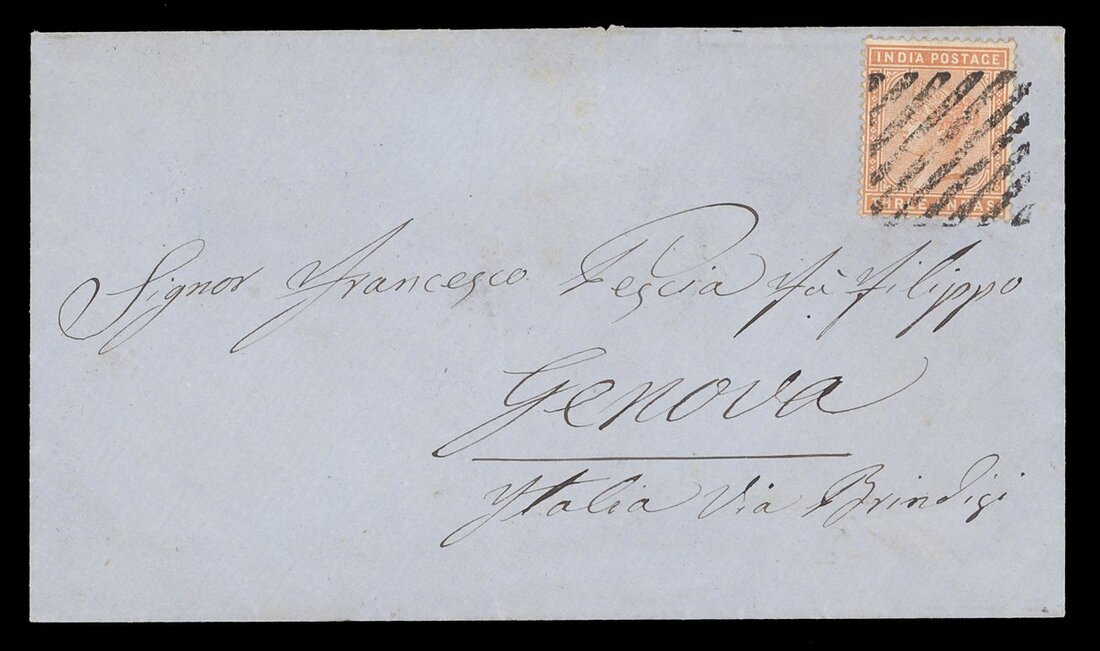 INDIA POSTAGE
THREE ANNAS
Signor Francesco Pescia fù Filippo
Genova
Italia Via Brindisi